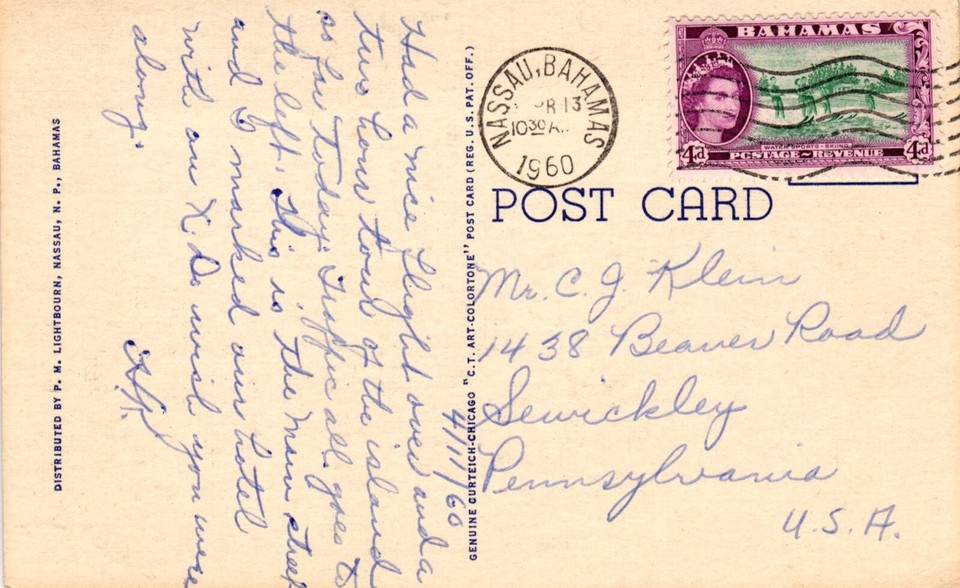 DISTRIBUTED BY P. M. LIGHTBOURN, NASSAU, N. P., BAHAMAS
4/11/60
Had a nice flight over and a
two hour tour of the island
so far today. Traffic all goes to
the left. This is the main street
and I marked our hotel
with an X. Do wish you were
along.
GENUINE CURTEICH-CHICAGO "C.T. ART-COLORTONE" POST CARD (REG. U.S. PAT. OFF.)
NASSAU, BAHAMAS
R 13
1030 A
1960
BAHAMAS
WATER SPORTS - SKIING
4d
POSTAGE~REVENUE
4d
POST CARD
Mr. C. J. Klein
1438 Beaver Road
Sewickley
Pennsylvania
U.S.A.